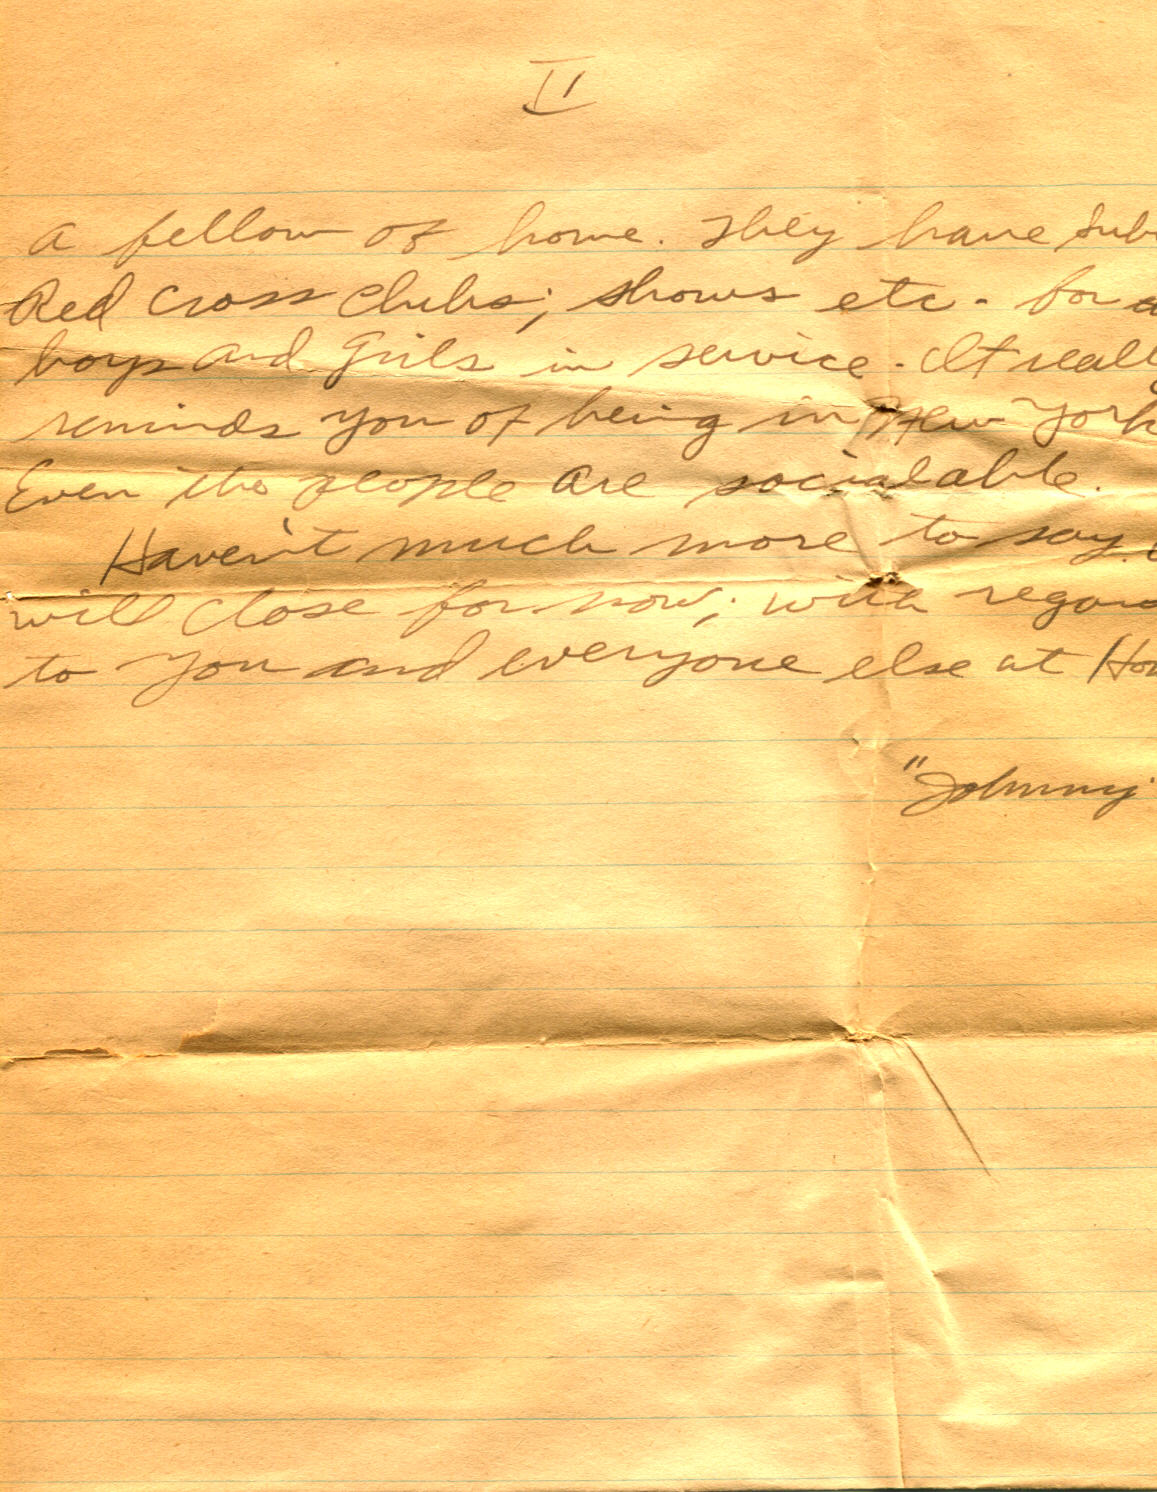 II
a fellow of home. They have Sub
Red Cross Clubs; shows etc. for a
boys and Girls in service. It reall
reminds you of being in New York
Even the people are socialable.
Haven't much more to say.
will close for now; with regar
to you and everyone else at Ho
"Johnny